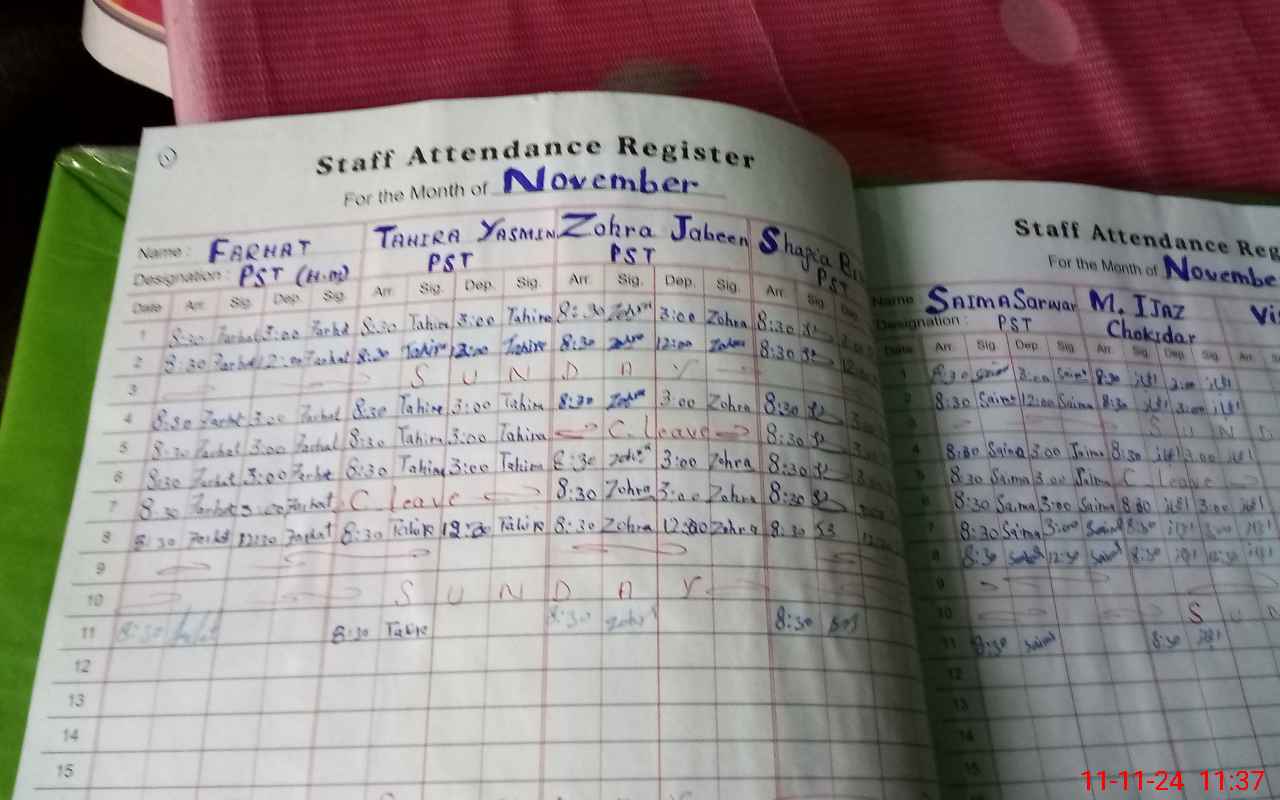 Staff Attendance Register
For the Month of November
Name : FARHAT TAHIRA YASMIN Zohra Jabeen Shazia
Designation : PST (H.M) PST PST PST
Date Arr. Sig. Dep. Sig. Arr. Sig. Dep. Sig. Arr. Sig. Dep. Sig. Arr. Sig. Dep.
1 8:30 Farhat 3:00 Farhat 8:30 Tahira 3:00 Tahira 8:30 Zohra 3:00 Zohra 8:30
2 8:30 Farhat 12:00 Farhat 8:30 Tahira 12:00 Tahira 8:30 Zohra 12:00 Zohra 8:30
3 S U N D A Y
4 8:30 Farhat 3:00 Farhat 8:30 Tahira 3:00 Tahira 8:30 Zohra 3:00 Zohra 8:30
5 8:30 Farhat 3:00 Farhat 8:30 Tahira 3:00 Tahira C. Leave 8:30
6 8:30 Farhat 3:00 Farhat 8:30 Tahira 3:00 Tahira 8:30 Zohra 3:00 Zohra 8:30
7 8:30 Farhat 3:00 Farhat C Leave 8:30 Zohra 3:00 Zohra 8:30
8 8:30 Farhat 12:30 Farhat 8:30 Tahira 12:30 Tahira 8:30 Zohra 12:30 Zohra 8:30
9
10 S U N D A Y
11 8:30 8:30 Tahira 8:30 Zohra 8:30
12
13
14
15
Staff Attendance Reg
For the Month of Novembe
Name SAIMA Sarwar M. IJAZ
Designation : PST Chokidar
Date Arr. Sig. Dep. Sig. Arr. Sig. Dep. Sig. Arr.
1 8:30 Saima 3:00 Saima 8:30 3:00
2 8:30 Saima 12:00 Saima 8:30 3:00
3 S U N D
4 8:30 Saima 3:00 Saima 8:30 3:00
5 8:30 Saima 3:00 Saima C Leave
6 8:30 Saima 3:00 Saima 8:30 3:00
7 8:30 Saima 3:00 Saima 8:30 3:00
8 8:30 Saima 12:30 Saima 8:30 12:30
9
10 S U D
11 8:30 Saima 8:30
12
13
14
15
11-11-24 11:37